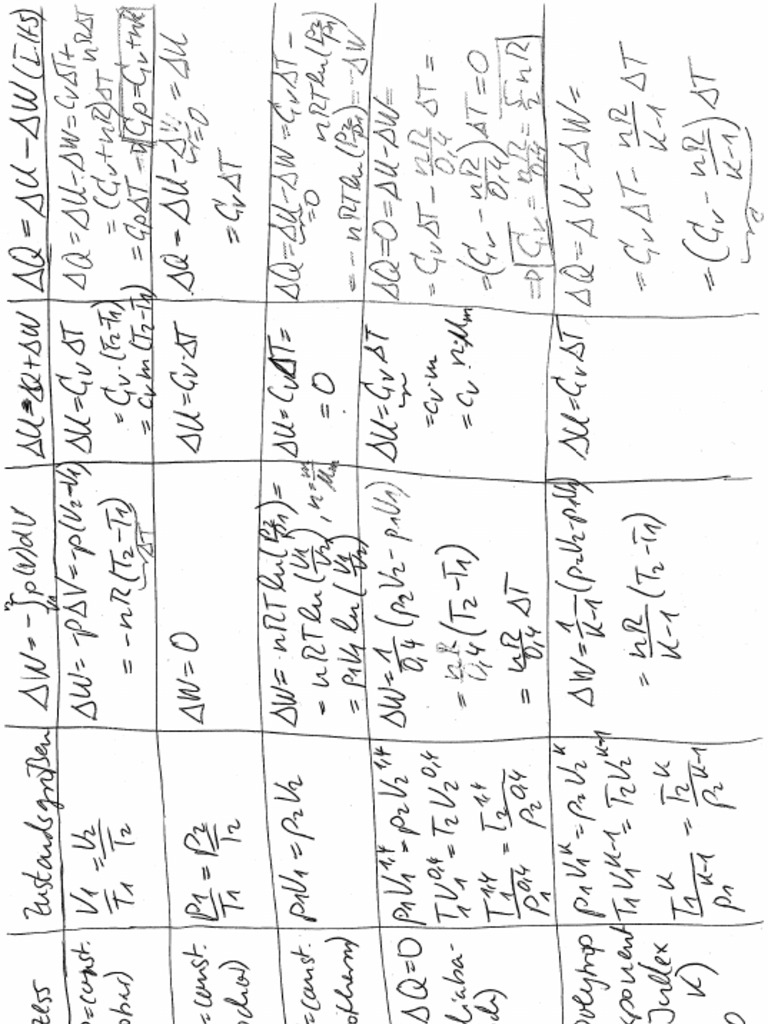 Zustandsgrößen
ΔW = -∫p(V)dV
ΔU = ΔQ + ΔW
ΔQ = ΔU - ΔW (I. HS)
p=const.
V1/T1 = V2/T2
ΔW = -pΔV = -p(V2-V1)
= -nR(T2-T1)
ΔT
ΔU = Cv ΔT
= Cv·(T2-T1)
= cv m (T2-T1)
ΔQ = ΔU - ΔW = CvΔT +
nRΔT
= (Cv + nR)ΔT
= CpΔT ⇒ Cp = Cv + nR
=const.
p1/T1 = p2/T2
ΔW = 0
ΔU = Cv·ΔT
ΔQ = ΔU - ΔW = ΔU
=0
= CvΔT
=const.
p1V1 = p2V2
ΔW = nRT ln(p2/p1) =
= nRT ln(V1/V2), n = m/Mm
= p1V1 ln(V1/V2)
ΔU = CvΔT =
= 0
ΔQ = ΔU - ΔW = CvΔT -
=0
nRT ln(p2/p1)
= -nRT ln(p2/p1) = -ΔW
ΔQ = 0
p1V1^1,4 = p2V2^1,4
T1V1^0,4 = T2V2^0,4
T1^1,4/p1^0,4 = T2^1,4/p2^0,4
ΔW = 1/0,4 (p2V2 - p1V1)
= nR/0,4 (T2-T1)
= nR/0,4 ΔT
ΔU = Cv ΔT
= cv·m
= cv·n·Mm
ΔQ = 0 = ΔU - ΔW =
= CvΔT - nR/0,4 ΔT =
= (Cv - nR/0,4) ΔT = 0
⇒ Cv = nR/0,4 = 5/2 nR
Index
K)
p1V1^K = p2V2^K
T1V1^K-1 = T2V2^K-1
T1^K/p1^K-1 = T2^K/p2^K-1
ΔW = 1/K-1 (p2V2 - p1V1)
= nR/K-1 (T2-T1)
ΔU = CvΔT
ΔQ = ΔU - ΔW =
= CvΔT - nR/K-1 ΔT
= (Cv - nR/K-1) ΔT